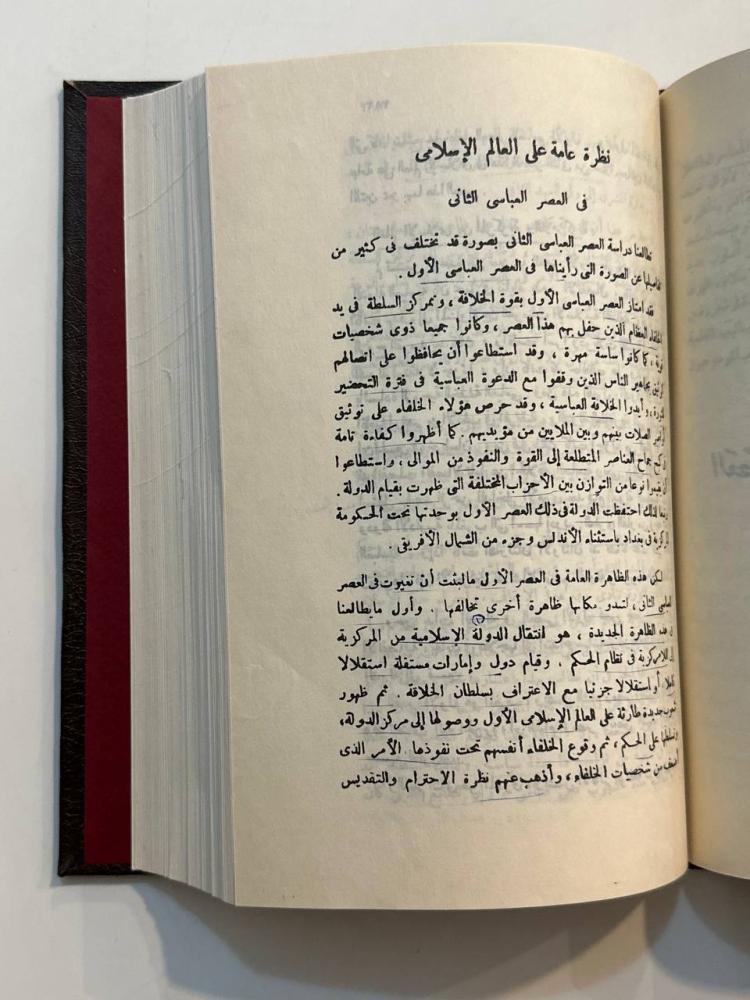 نظرة عامة على العالم الإسلامى
فى العصر العباسى الثانى
تطالعنا دراسة العصر العباسى الثانى بصورة قد تختلف فى كثير من
تفاصيلها عن الصورة التى رأيناها فى العصر العباسى الأول .
فقد امتاز العصر العباسى الأول بقوة الخلافة ، وتمركز السلطة فى يد
الخلفاء العظام الذين حفل بهم هذا العصر ، وكانوا جميعا ذوى شخصيات
قوية ، كما كانوا ساسة مهرة ، وقد استطاعوا أن يحافظوا على اتصالهم
الوثيق بجماهير الناس الذين وقفوا مع الدعوة العباسية فى فترة التحضير
للثورة ، وأيدوا الخلافة العباسية ، وقد حرص هؤلاء الخلفاء على توثيق
الصلات بينهم وبين الملايين من مؤيديهم . كما أظهروا كفاءة تامة
كبح جماح العناصر المتطلعة إلى القوة والنفوذ من الموالى ، واستطاعوا
أن يقيموا نوعا من التوازن بين الأحزاب المختلفة التى ظهرت بقيام الدولة .
لذلك احتفظت الدولة فى ذلك العصر الأول بوحدتها تحت الحكومة
المركزية فى بغداد باستثناء الأندلس وجزء من الشمال الأفريقى .
لكن هذه الظاهرة العامة فى العصر الأول مالبثت أن تغيرت فى العصر
العباسى الثانى ، لتبدو مكانها ظاهرة أخرى تخالفها . وأول مايطالعنا
هذه الظاهرة الجديدة ، هو انتقال الدولة (١) الإسلامية من المركزية
إلى اللامركزية فى نظام الحكم . وقيام دول وإمارات مستقلة استقلالا
كاملا أو استقلالا جزئيا مع الاعتراف بسلطان الخلافة . ثم ظهور
شعوب جديدة طارئة على العالم الإسلامى الأول ووصولها إلى مركز الدولة ،
وتسلطها على الحكم ، ثم وقوع الخلفاء أنفسهم تحت نفوذها . الأمر الذى
أضعف من شخصيات الخلفاء ، وأذهب عنهم نظرة الاحترام والتقديس